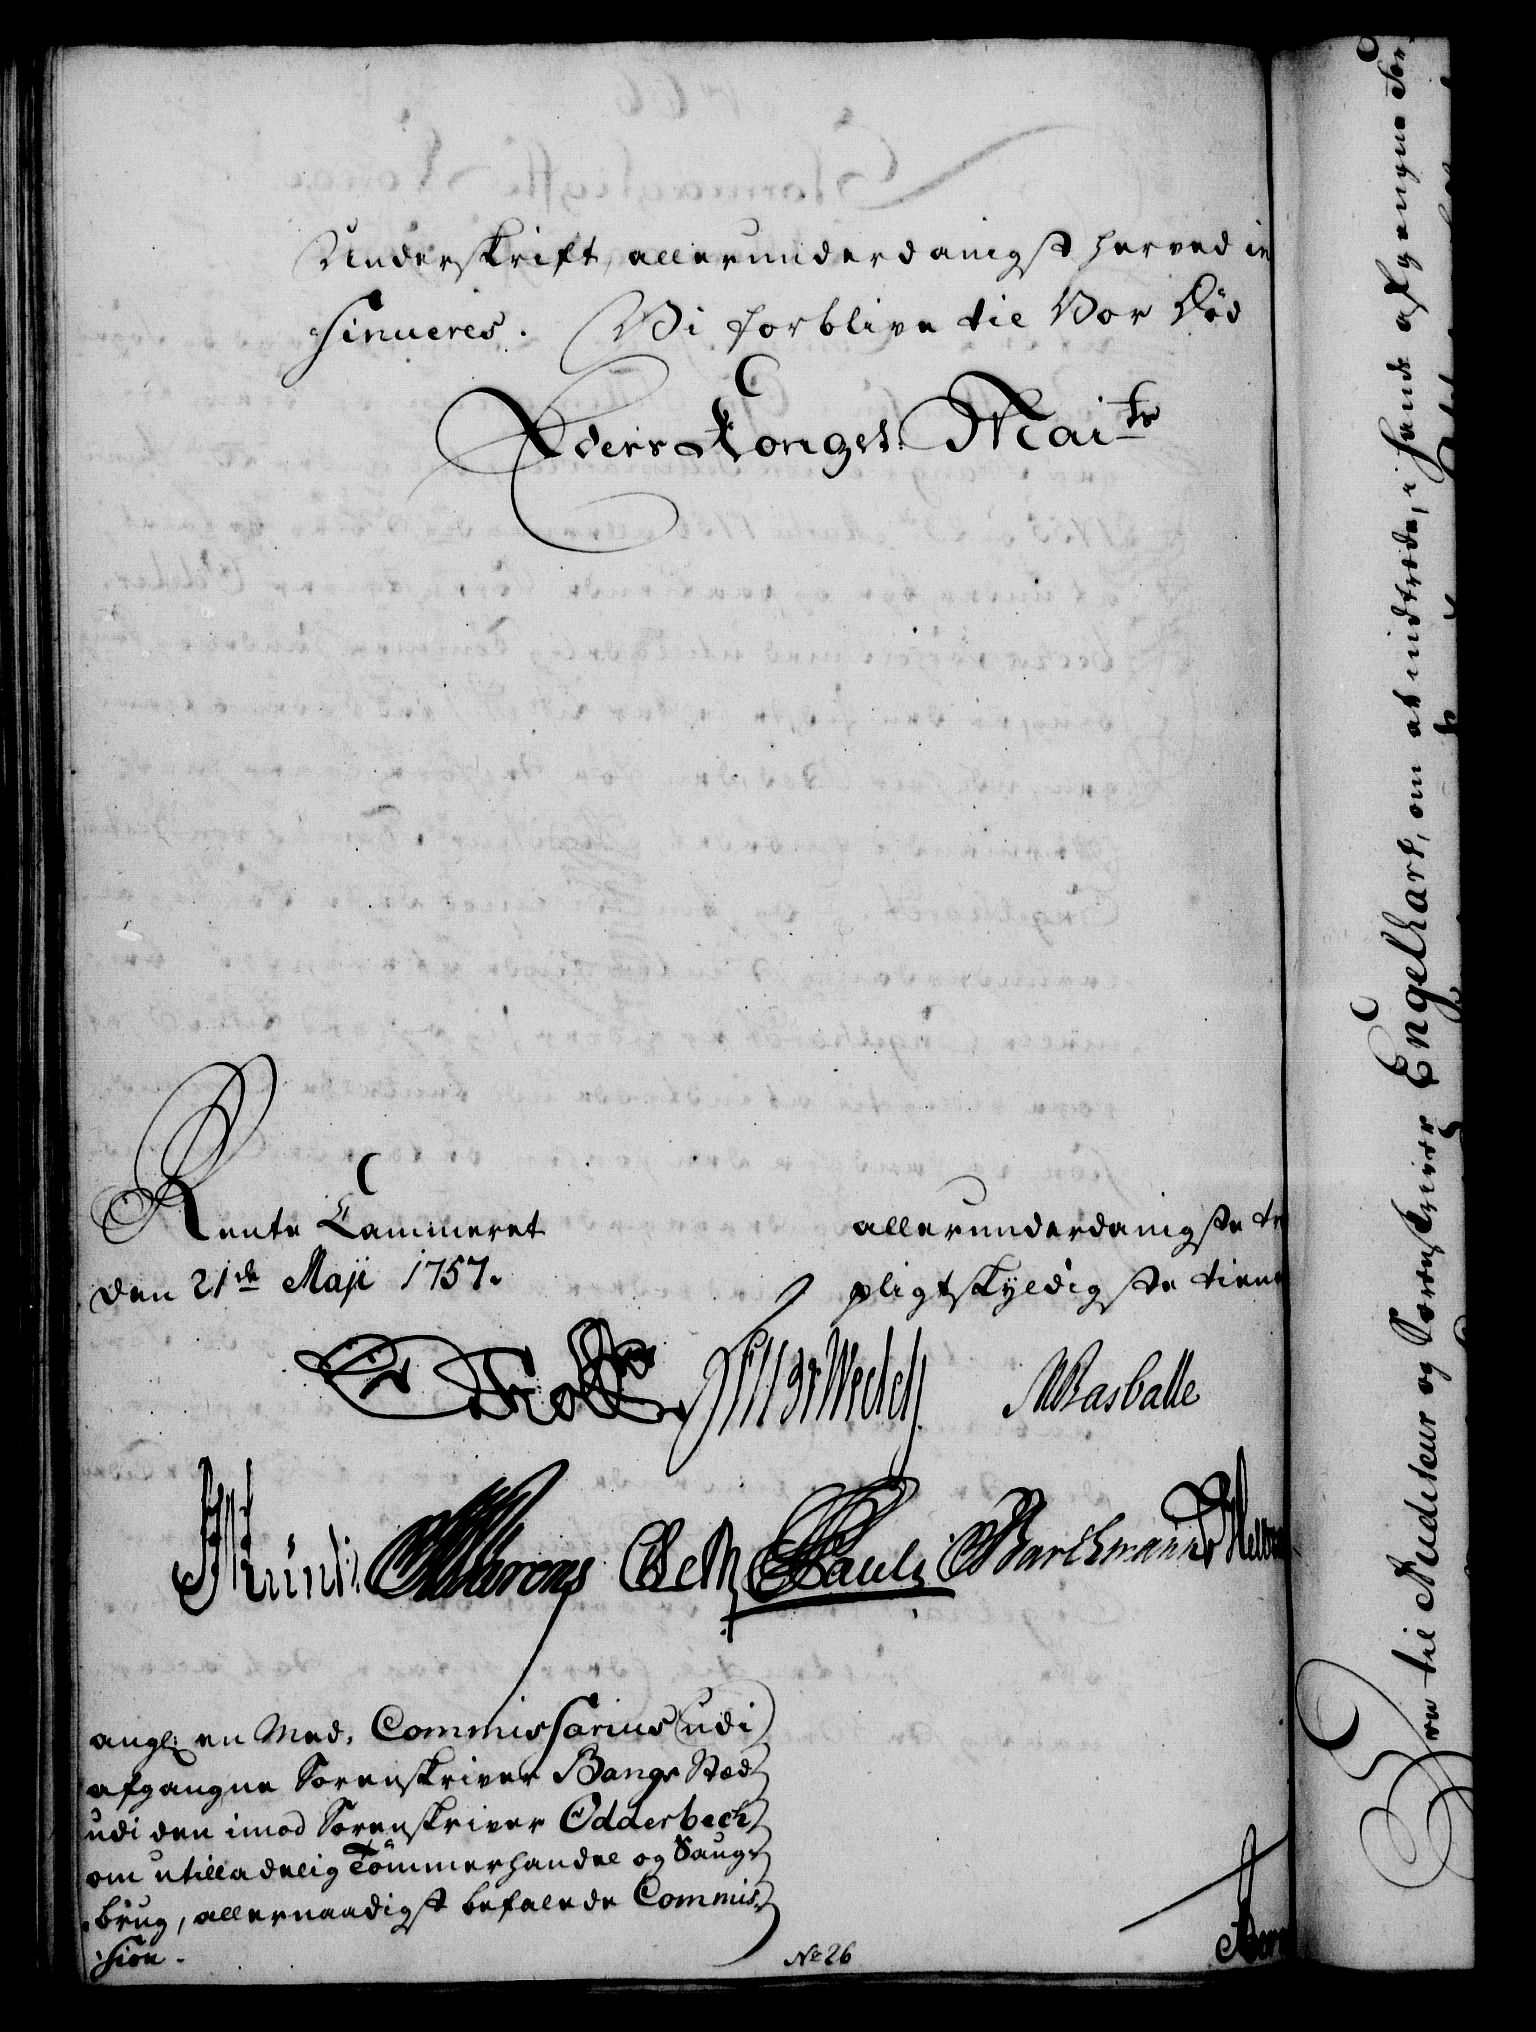 Underskrift, allerunderdanigst herved in
sinueres. Vi forblive til Vor Död
Eders Konges. Mai<sup>ts</sup>
Rente Cammeret
den 21<sup>de</sup> Maji 1757.
allerunderdanigste tr
pligtskyldigste tiene
Wedell
Rasballe
Ahrons
Pauli
Barthmann
angl: en Med. Commissarius udi
afgangne Sorenskriver Bangs Stæd
udi den imod Sorenskriver Odderbech
om utilladelig Tömmerhandel og Saug-
brug, allernaadigst befalede Commis-
sion.
No 26
til Auditeur og Sorenskriver Engelhart, om at indtræde, i Hands afgangne For